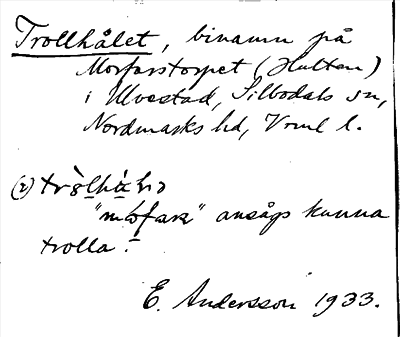 Trollhålet, binamn på
Morfarstorpet (Hulten)
i Ulvestad, Silbodals sn,
Nordmarks hd, Vrml l.
(2)
"morfarn" ansågs kunna
trolla.
E. Andersson 1933.